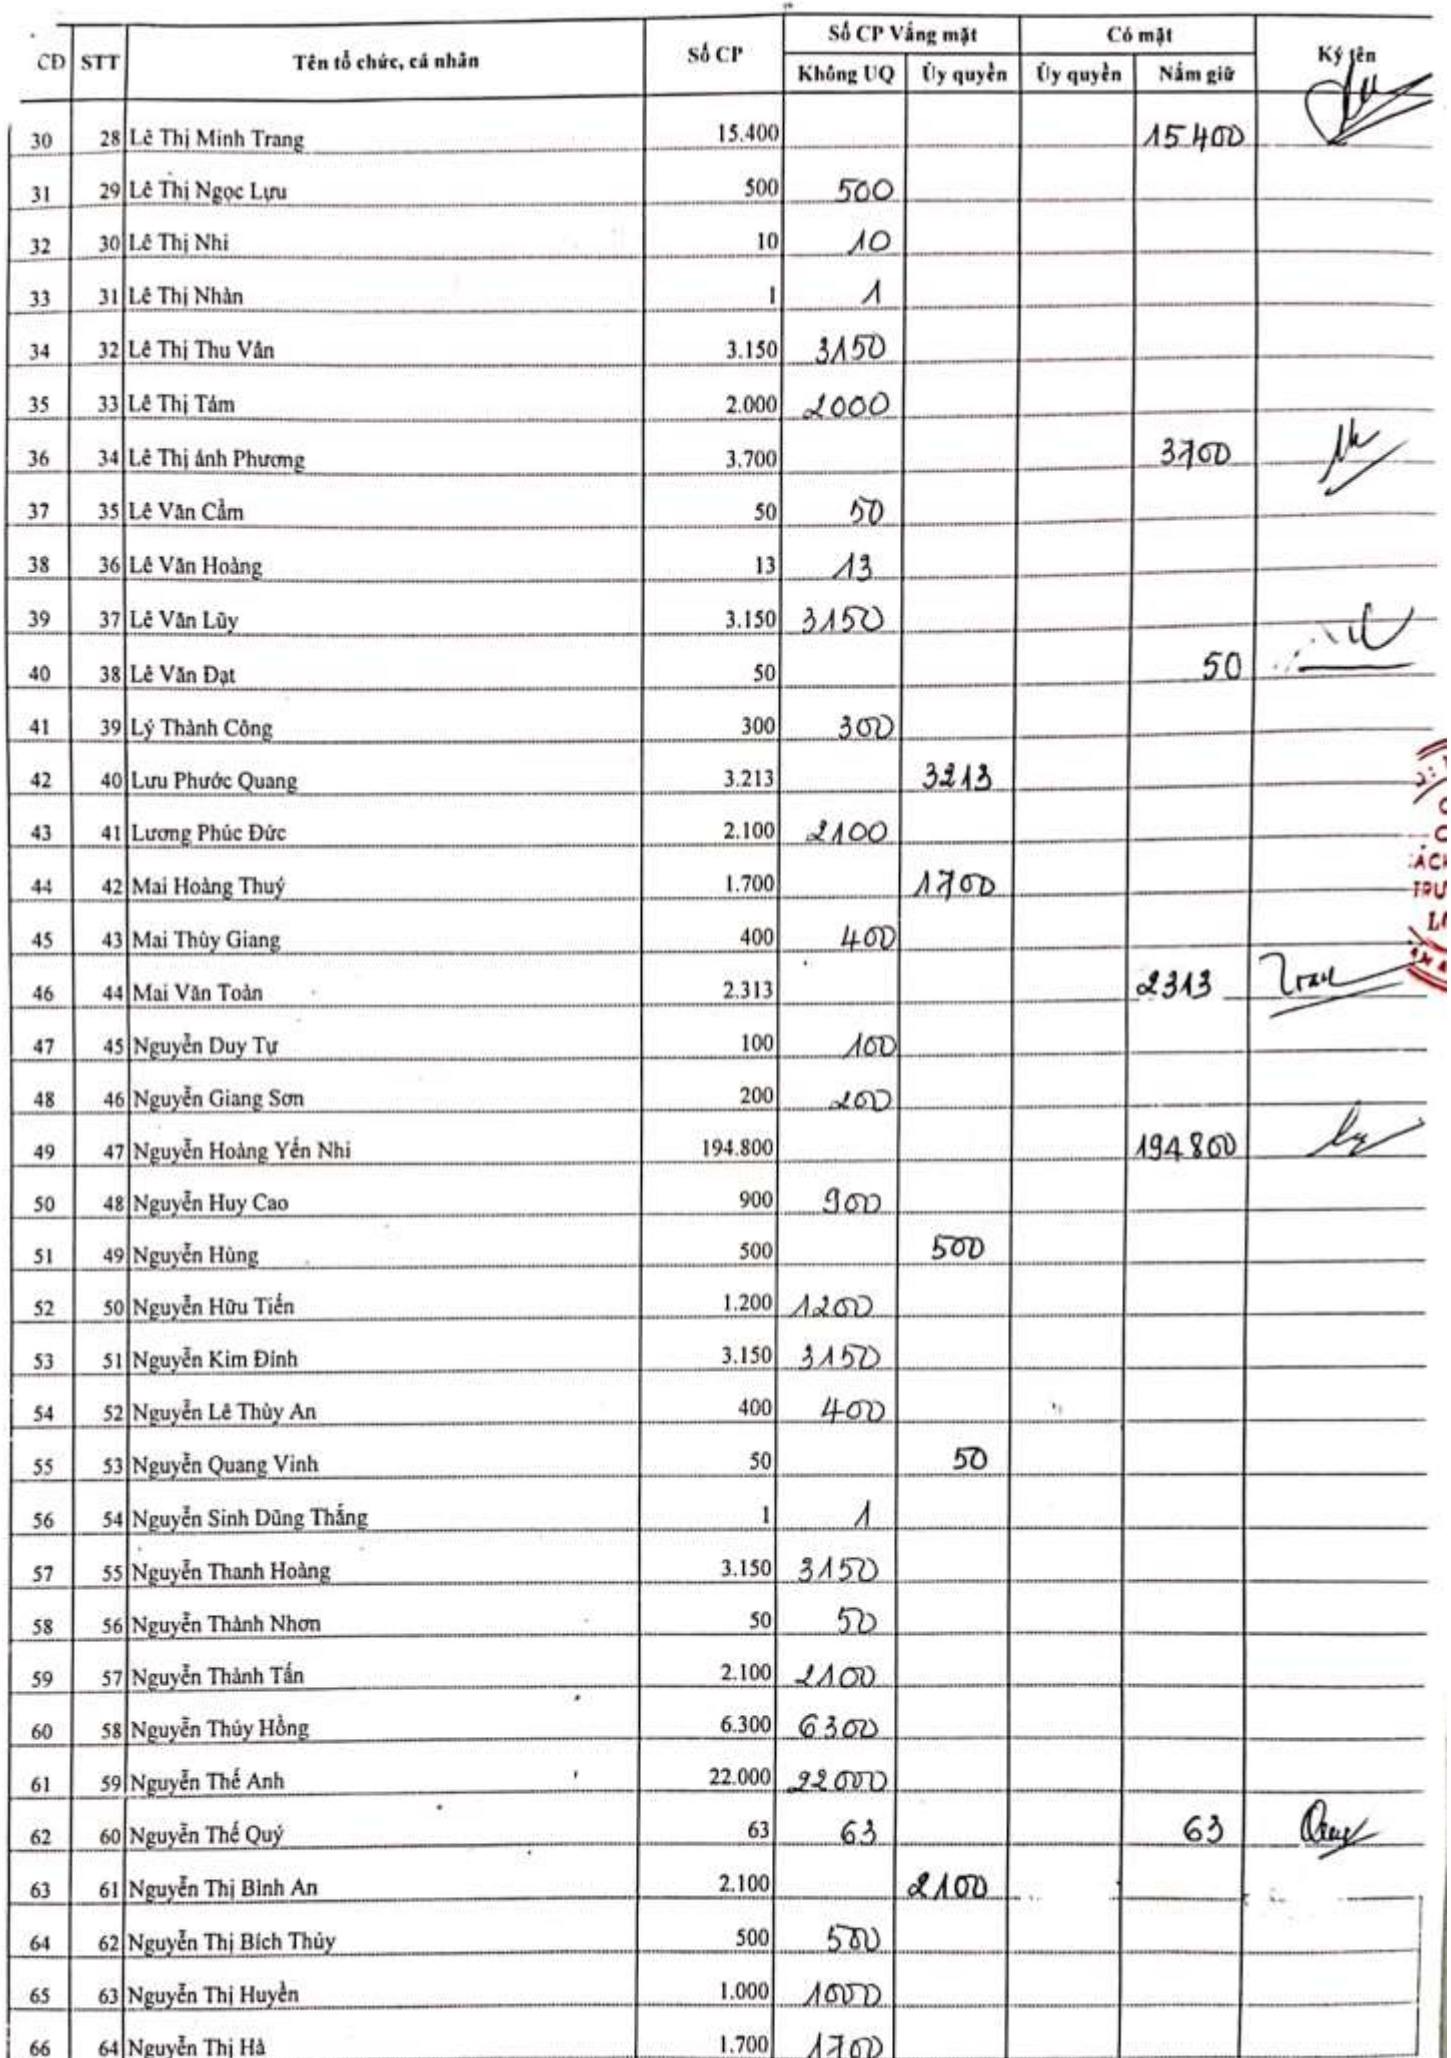 CĐ STT Tên tổ chức, cá nhân Số CP Số CP Vắng mặt Có mặt Ký tên
Không UQ Ủy quyền Ủy quyền Nắm giữ
30 28 Lê Thị Minh Trang 15.400 15400
31 29 Lê Thị Ngọc Lựu 500 500
32 30 Lê Thị Nhi 10 10
33 31 Lê Thị Nhàn 1 1
34 32 Lê Thị Thu Vân 3.150 3150
35 33 Lê Thị Tám 2.000 2000
36 34 Lê Thị ánh Phương 3.700 3700
37 35 Lê Văn Cầm 50 50
38 36 Lê Văn Hoàng 13 13
39 37 Lê Văn Lũy 3.150 3150
40 38 Lê Văn Đạt 50 50
41 39 Lý Thành Công 300 300
42 40 Lưu Phước Quang 3.213 3213
43 41 Lương Phúc Đức 2.100 2100
44 42 Mai Hoàng Thuý 1.700 1700
45 43 Mai Thùy Giang 400 400
46 44 Mai Văn Toàn 2.313 2313
47 45 Nguyễn Duy Tự 100 100
48 46 Nguyễn Giang Sơn 200 200
49 47 Nguyễn Hoàng Yến Nhi 194.800 194.800
50 48 Nguyễn Huy Cao 900 900
51 49 Nguyễn Hùng 500 500
52 50 Nguyễn Hữu Tiến 1.200 1200
53 51 Nguyễn Kim Đính 3.150 3150
54 52 Nguyễn Lê Thùy An 400 400
55 53 Nguyễn Quang Vinh 50 50
56 54 Nguyễn Sinh Dũng Thắng 1 1
57 55 Nguyễn Thanh Hoàng 3.150 3150
58 56 Nguyễn Thành Nhơn 50 50
59 57 Nguyễn Thành Tấn 2.100 2100
60 58 Nguyễn Thúy Hồng 6.300 6300
61 59 Nguyễn Thế Anh 22.000 22000
62 60 Nguyễn Thế Quý 63 63 63
63 61 Nguyễn Thị Bình An 2.100 2100
64 62 Nguyễn Thị Bích Thủy 500 500
65 63 Nguyễn Thị Huyền 1.000 1000
66 64 Nguyễn Thị Hà 1.700 1700